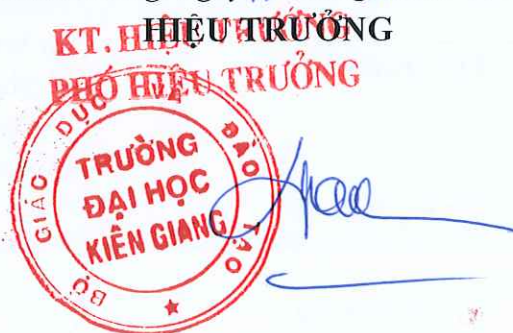 HIỆU TRƯỞNG
KT. HIỆU TRƯỞNG
PHÓ HIỆU TRƯỞNG
BỘ GIÁO DỤC VÀ ĐÀO TẠO
TRƯỜNG
ĐẠI HỌC
KIÊN GIANG